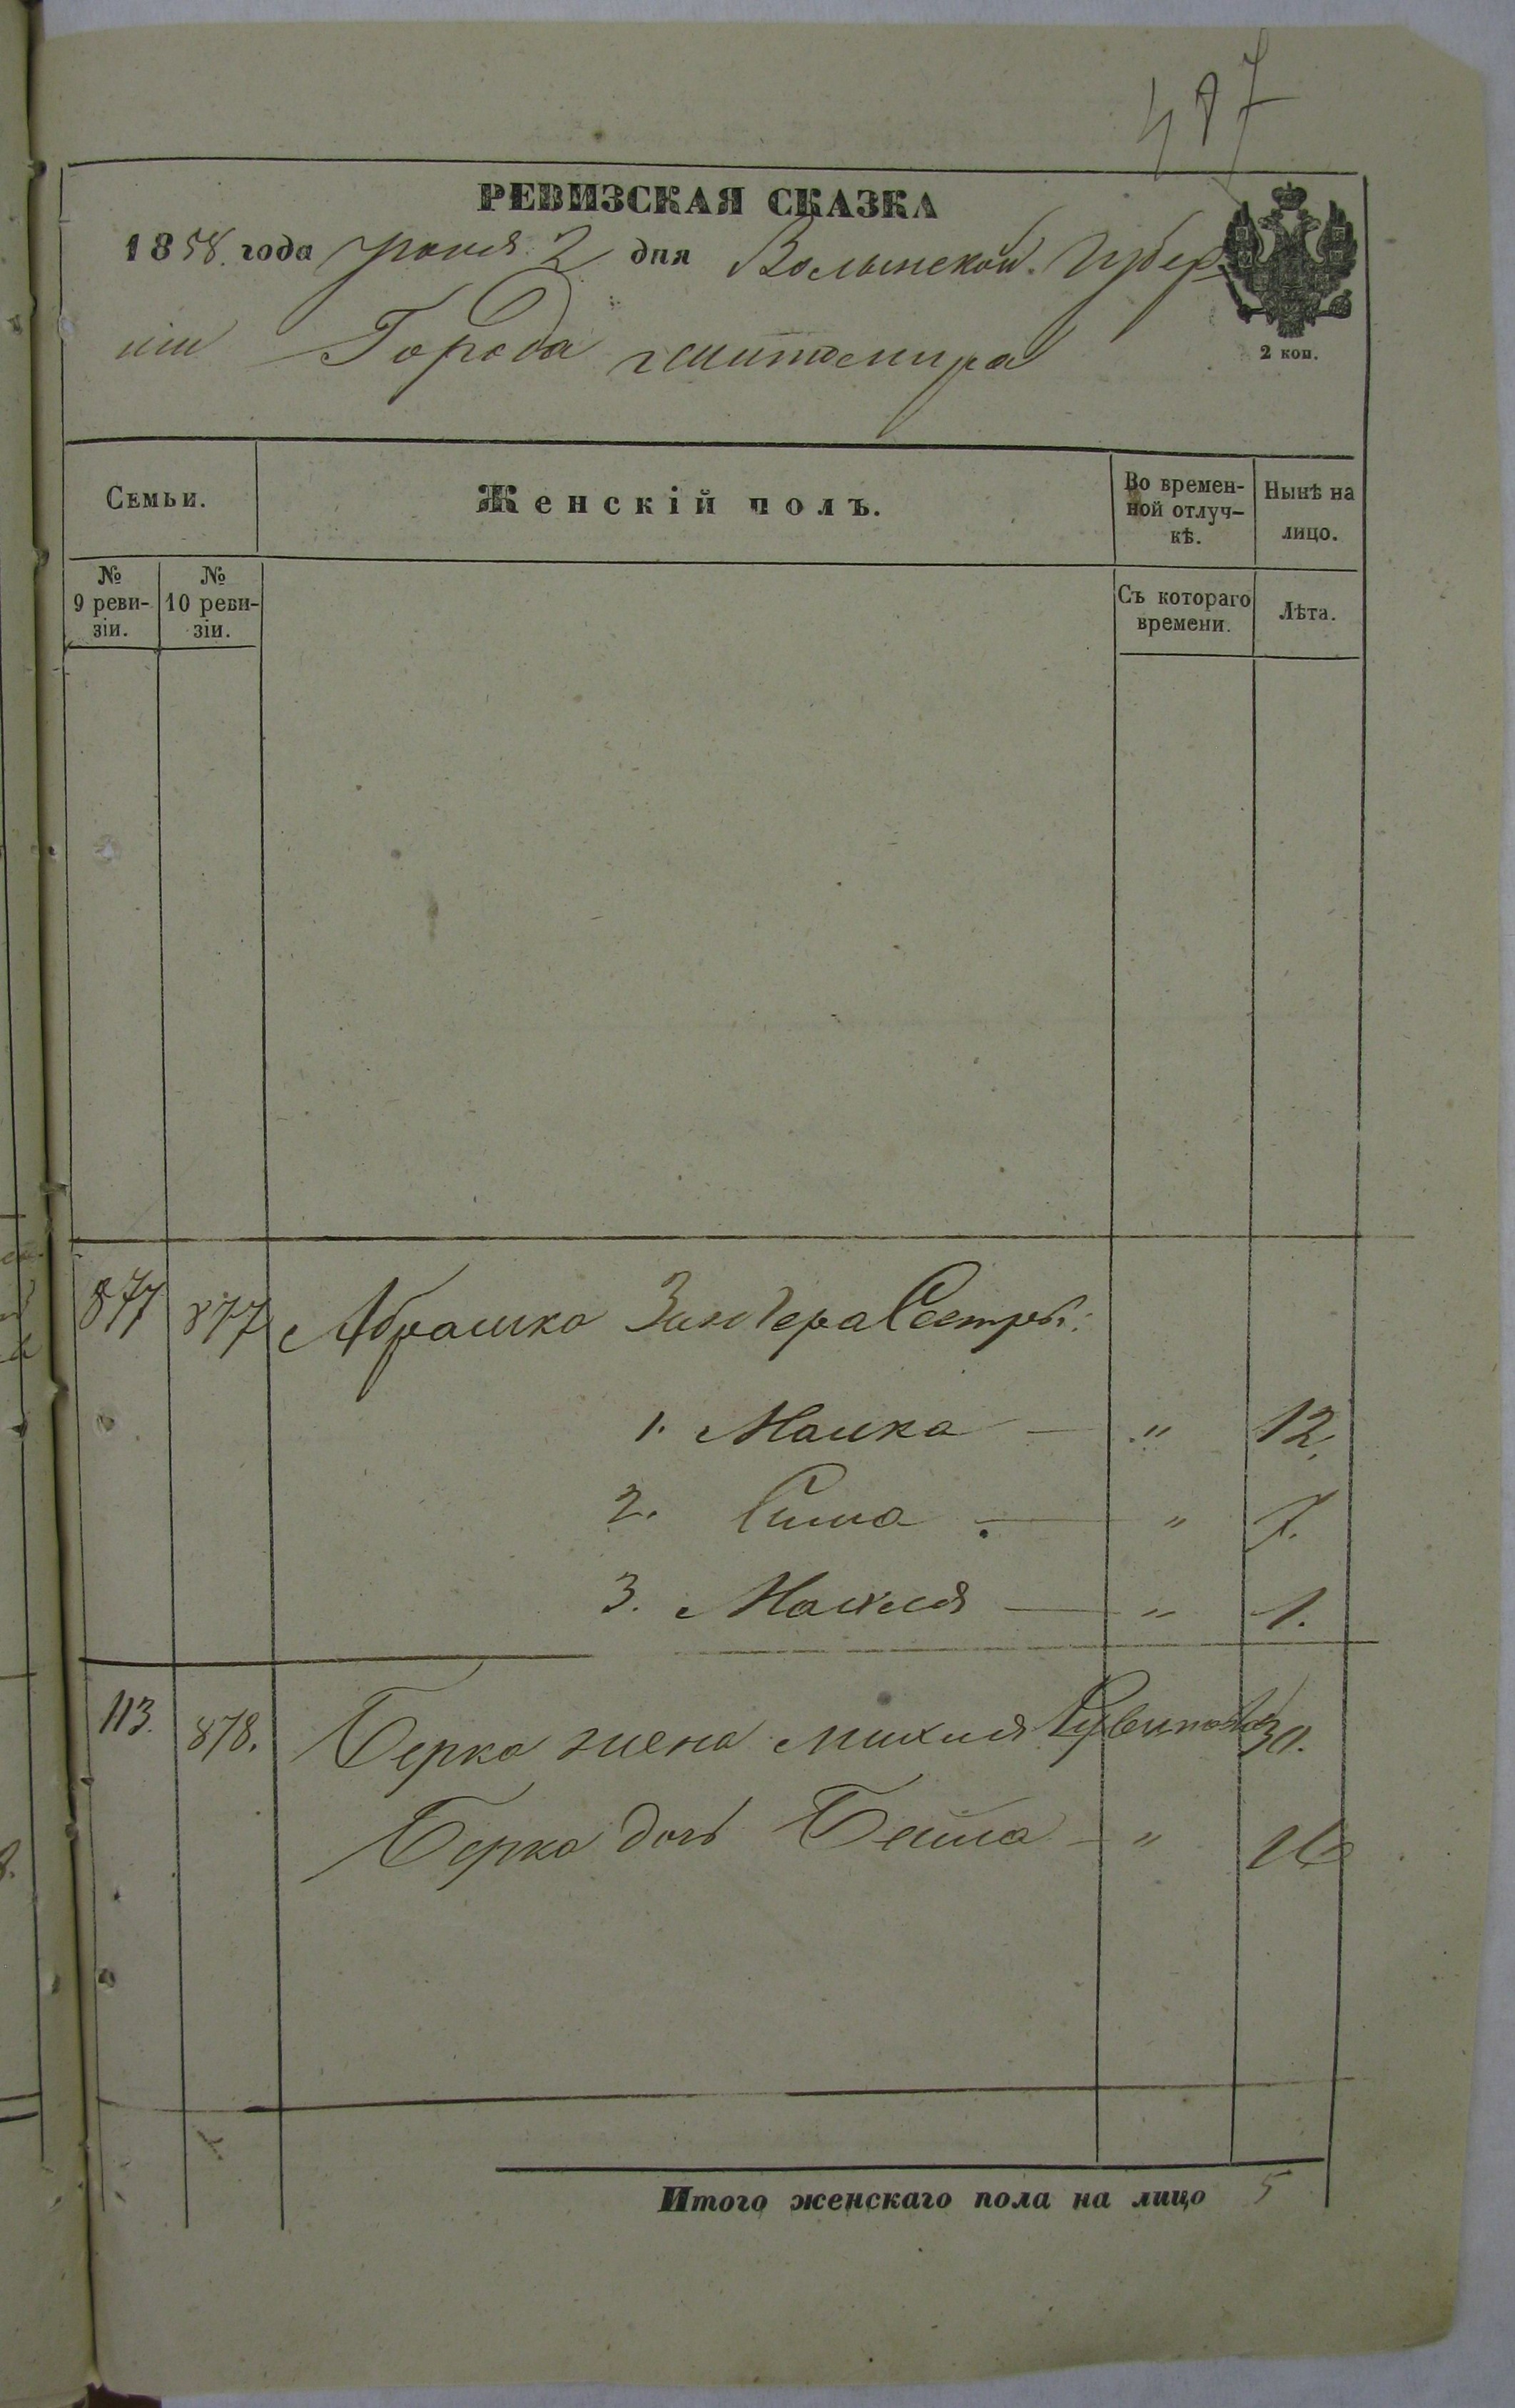 477
РЕВИЗСКАЯ СКАЗКА
1858. года Июня 2 дня Волынской Губер
ніи Города житомира
2 коп.
Семьи.
Женскій полъ.
Во времен-
ной отлуч-
кѣ.
Нынѣ на
лицо.
№
9 реви-
зіи.
№
10 реви-
зіи.
Съ котораго
времени.
Лѣта.
877 877 Абрашка Зингера Сестры:
1. Малка — " 12.
2. Сима — " 7.
3. — " 1.
113. 878. Берка жена Михля Рувинова 30.
Берка дочь Бейла — " 16
Итого женскаго пола на лицо 5